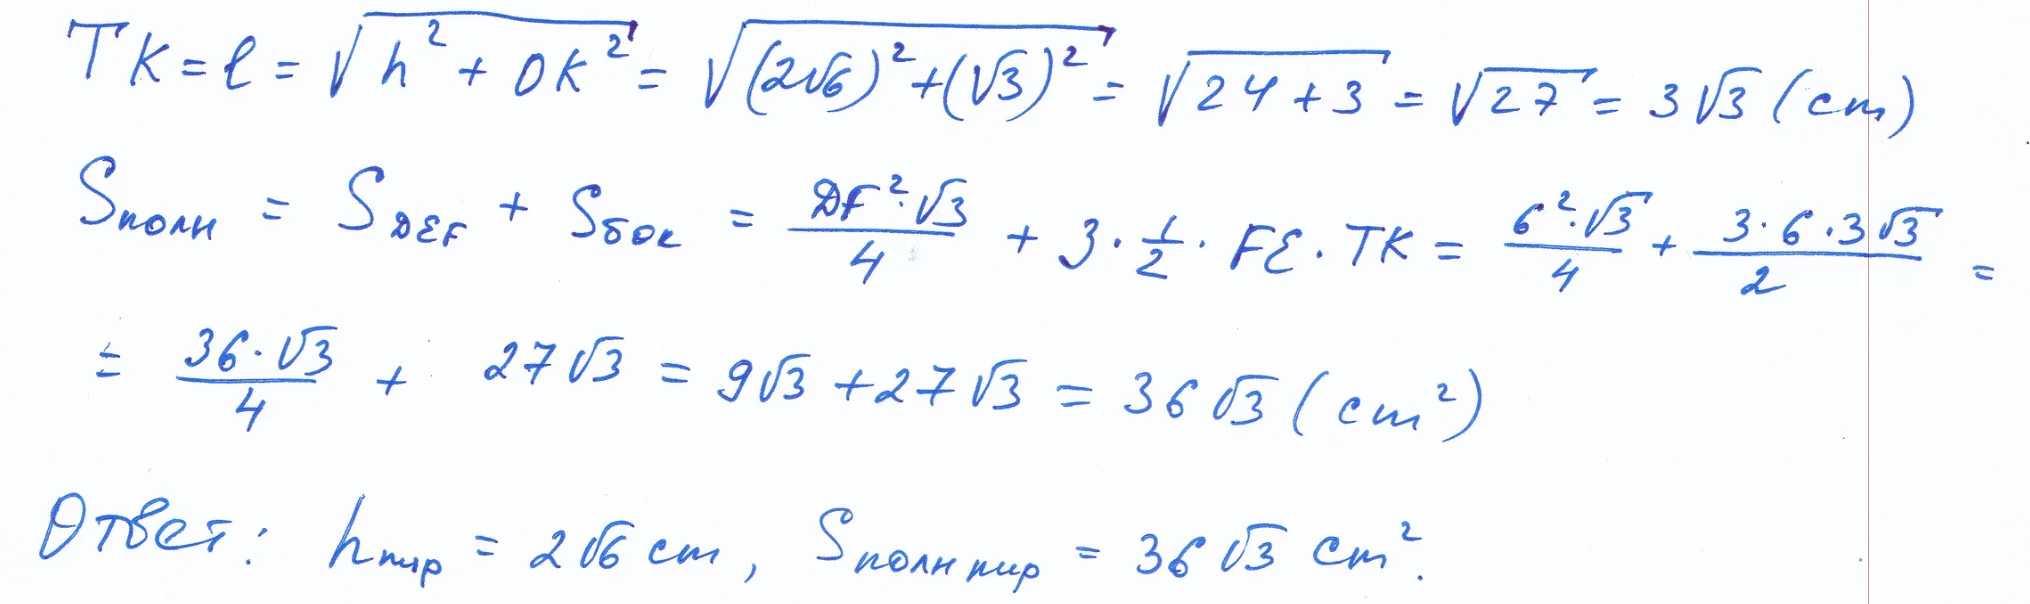 TK = ℓ = √(h² + OK²) = √((2√6)² + (√3)²) = √(24 + 3) = √27 = 3√3 (cm)
Sполн = S_DEF + Sбок = DF²·√3/4 + 3 · 1/2 · FE · TK = 6²·√3/4 + 3·6·3√3/2 =
= 36·√3/4 + 27√3 = 9√3 + 27√3 = 36√3 (cm²)
Ответ: hпир = 2√6 cm, Sполн пир = 36√3 cm².